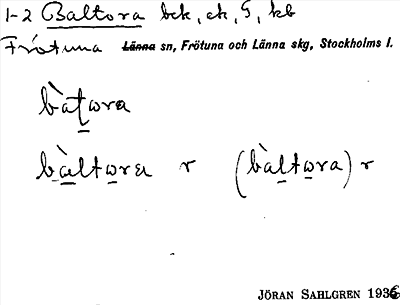 1-2 Baltora bck, ek, 5, kb
Frötuna Länna sn, Frötuna och Länna skg, Stockholms l.
bàt̲ωra
bàltωra r (bàltωra) r
JÖRAN SAHLGREN 1936